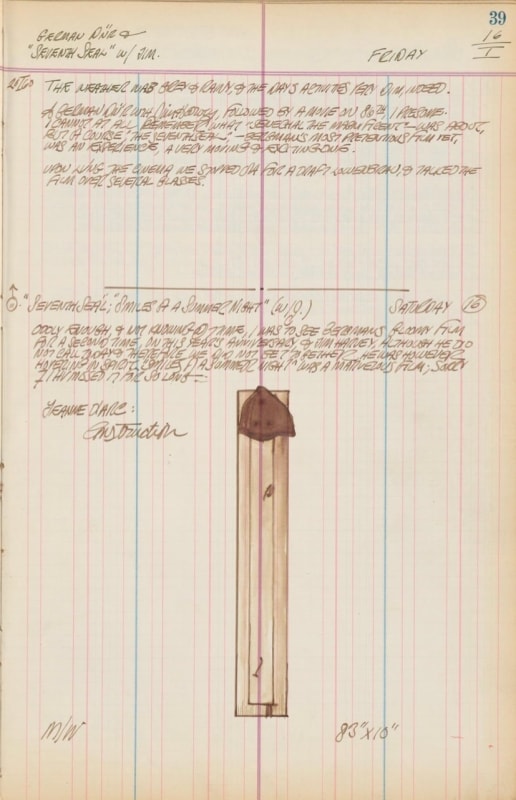 39
GERMAN DIN'R &
"SEVENTH SEAL" W/ JIM.
FRIDAY
16
I
THE WEATHER WAS GREY & RAINY, & THE DAY'S ACTIVITES VERY DIM, INDEED.
A GERMAN DIN'R WITH JIM, FOLLOWED BY A MOVIE ON 86TH I PRESUME.
I CANNOT AT ALL REMEMBER WHAT THE MAGNIFICENT WAS ABOUT,
BUT OF COURSE "THE SEVENTH SEAL" – BERGMAN'S MOST PRETENTIOUS FILM YET,
WAS AN EXPERIENCE, A VERY MOVING & EXCITING ONE.
UPON THE CINEMA WE STOPPED OFF FOR A DRAFT & TALKED THE
FILM OVER SEVERAL GLASSES.
"SEVENTH SEAL", "SMILES OF A SUMMER NIGHT" (W/D.)
SATURDAY 16
ODDLY ENOUGH, & NOT KNOWING TIME, I WAS TO SEE BERGMAN'S GLOOMY FILM
FOR A SECOND TIME, ON THIS YEAR'S ANNIVERSARY OF JIM HARVEY, ALTHOUGH HE DID
NOT CALL TODAY & THEREFORE WE DID NOT GET TOGETHER, HE WAS HOWEVER
HOVERING IN SPIRIT. SMILES OF A SUMMER NIGHT WAS A MARVELOUS FILM; SORRY
I HAD MISSED IT FOR SO LONG –
JEANNE D'ARC:
Construction
M/W
83" X 10"